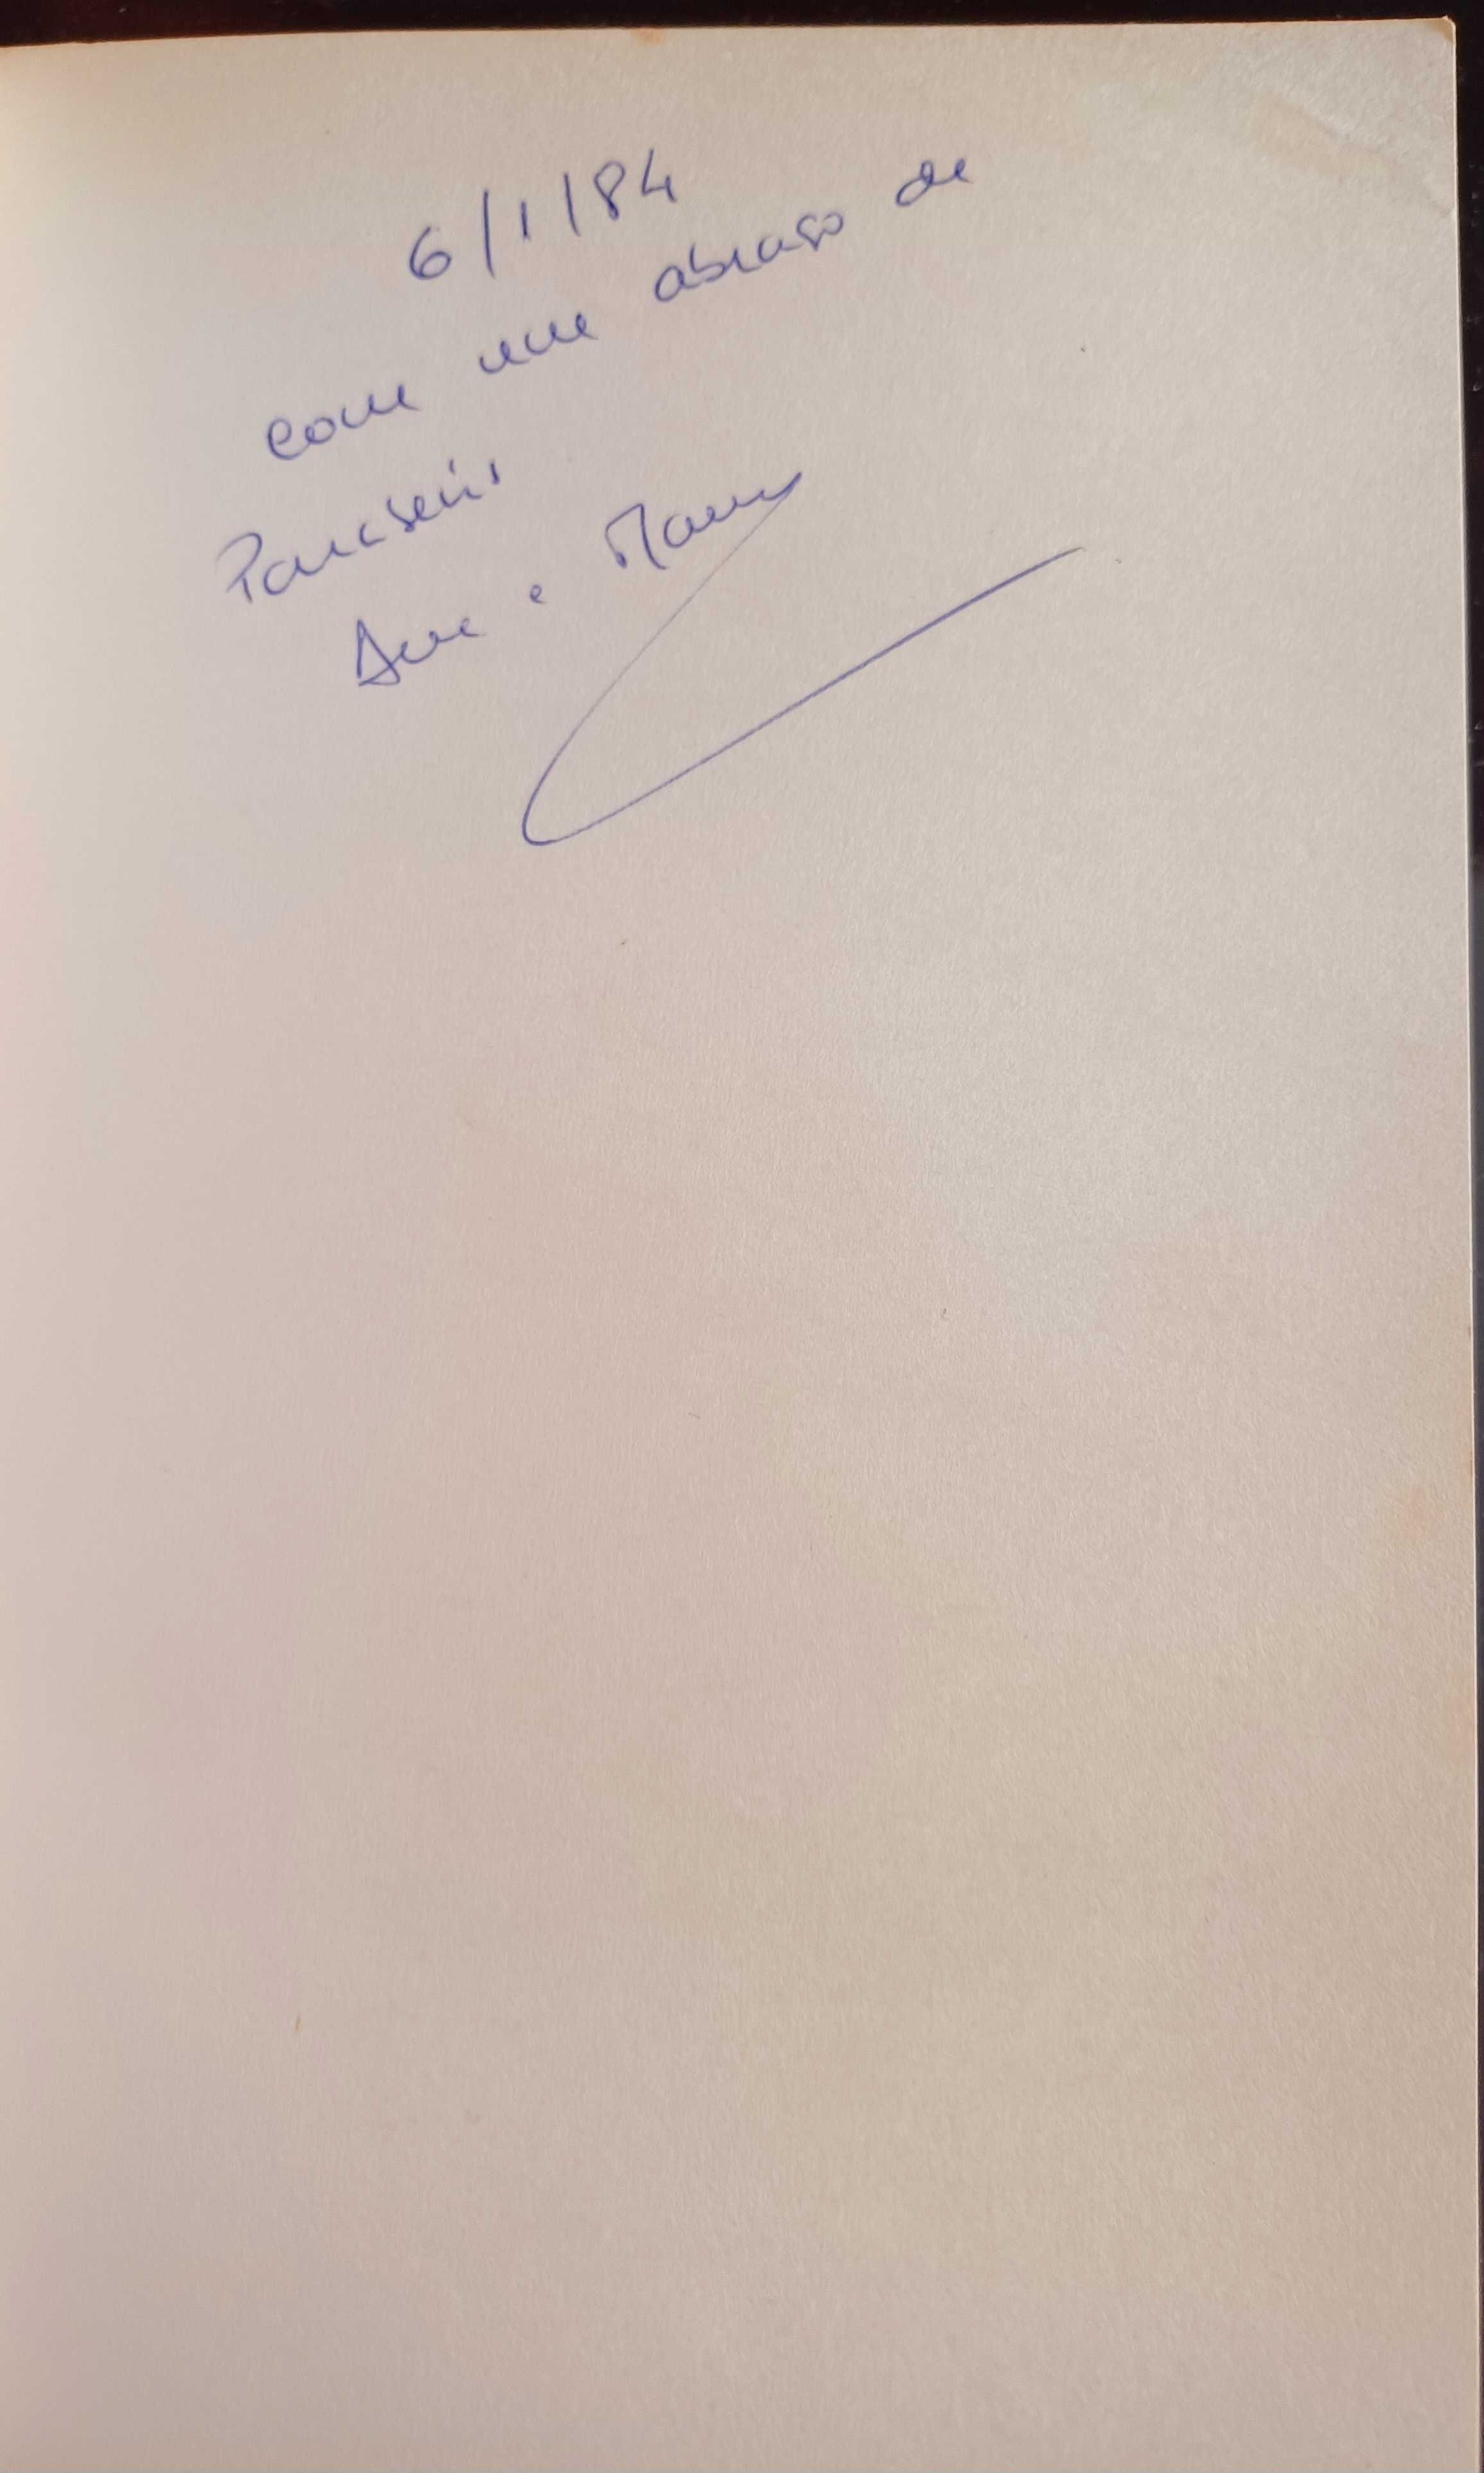 6/1/84
com um abraço de
Parabéns
Ana e